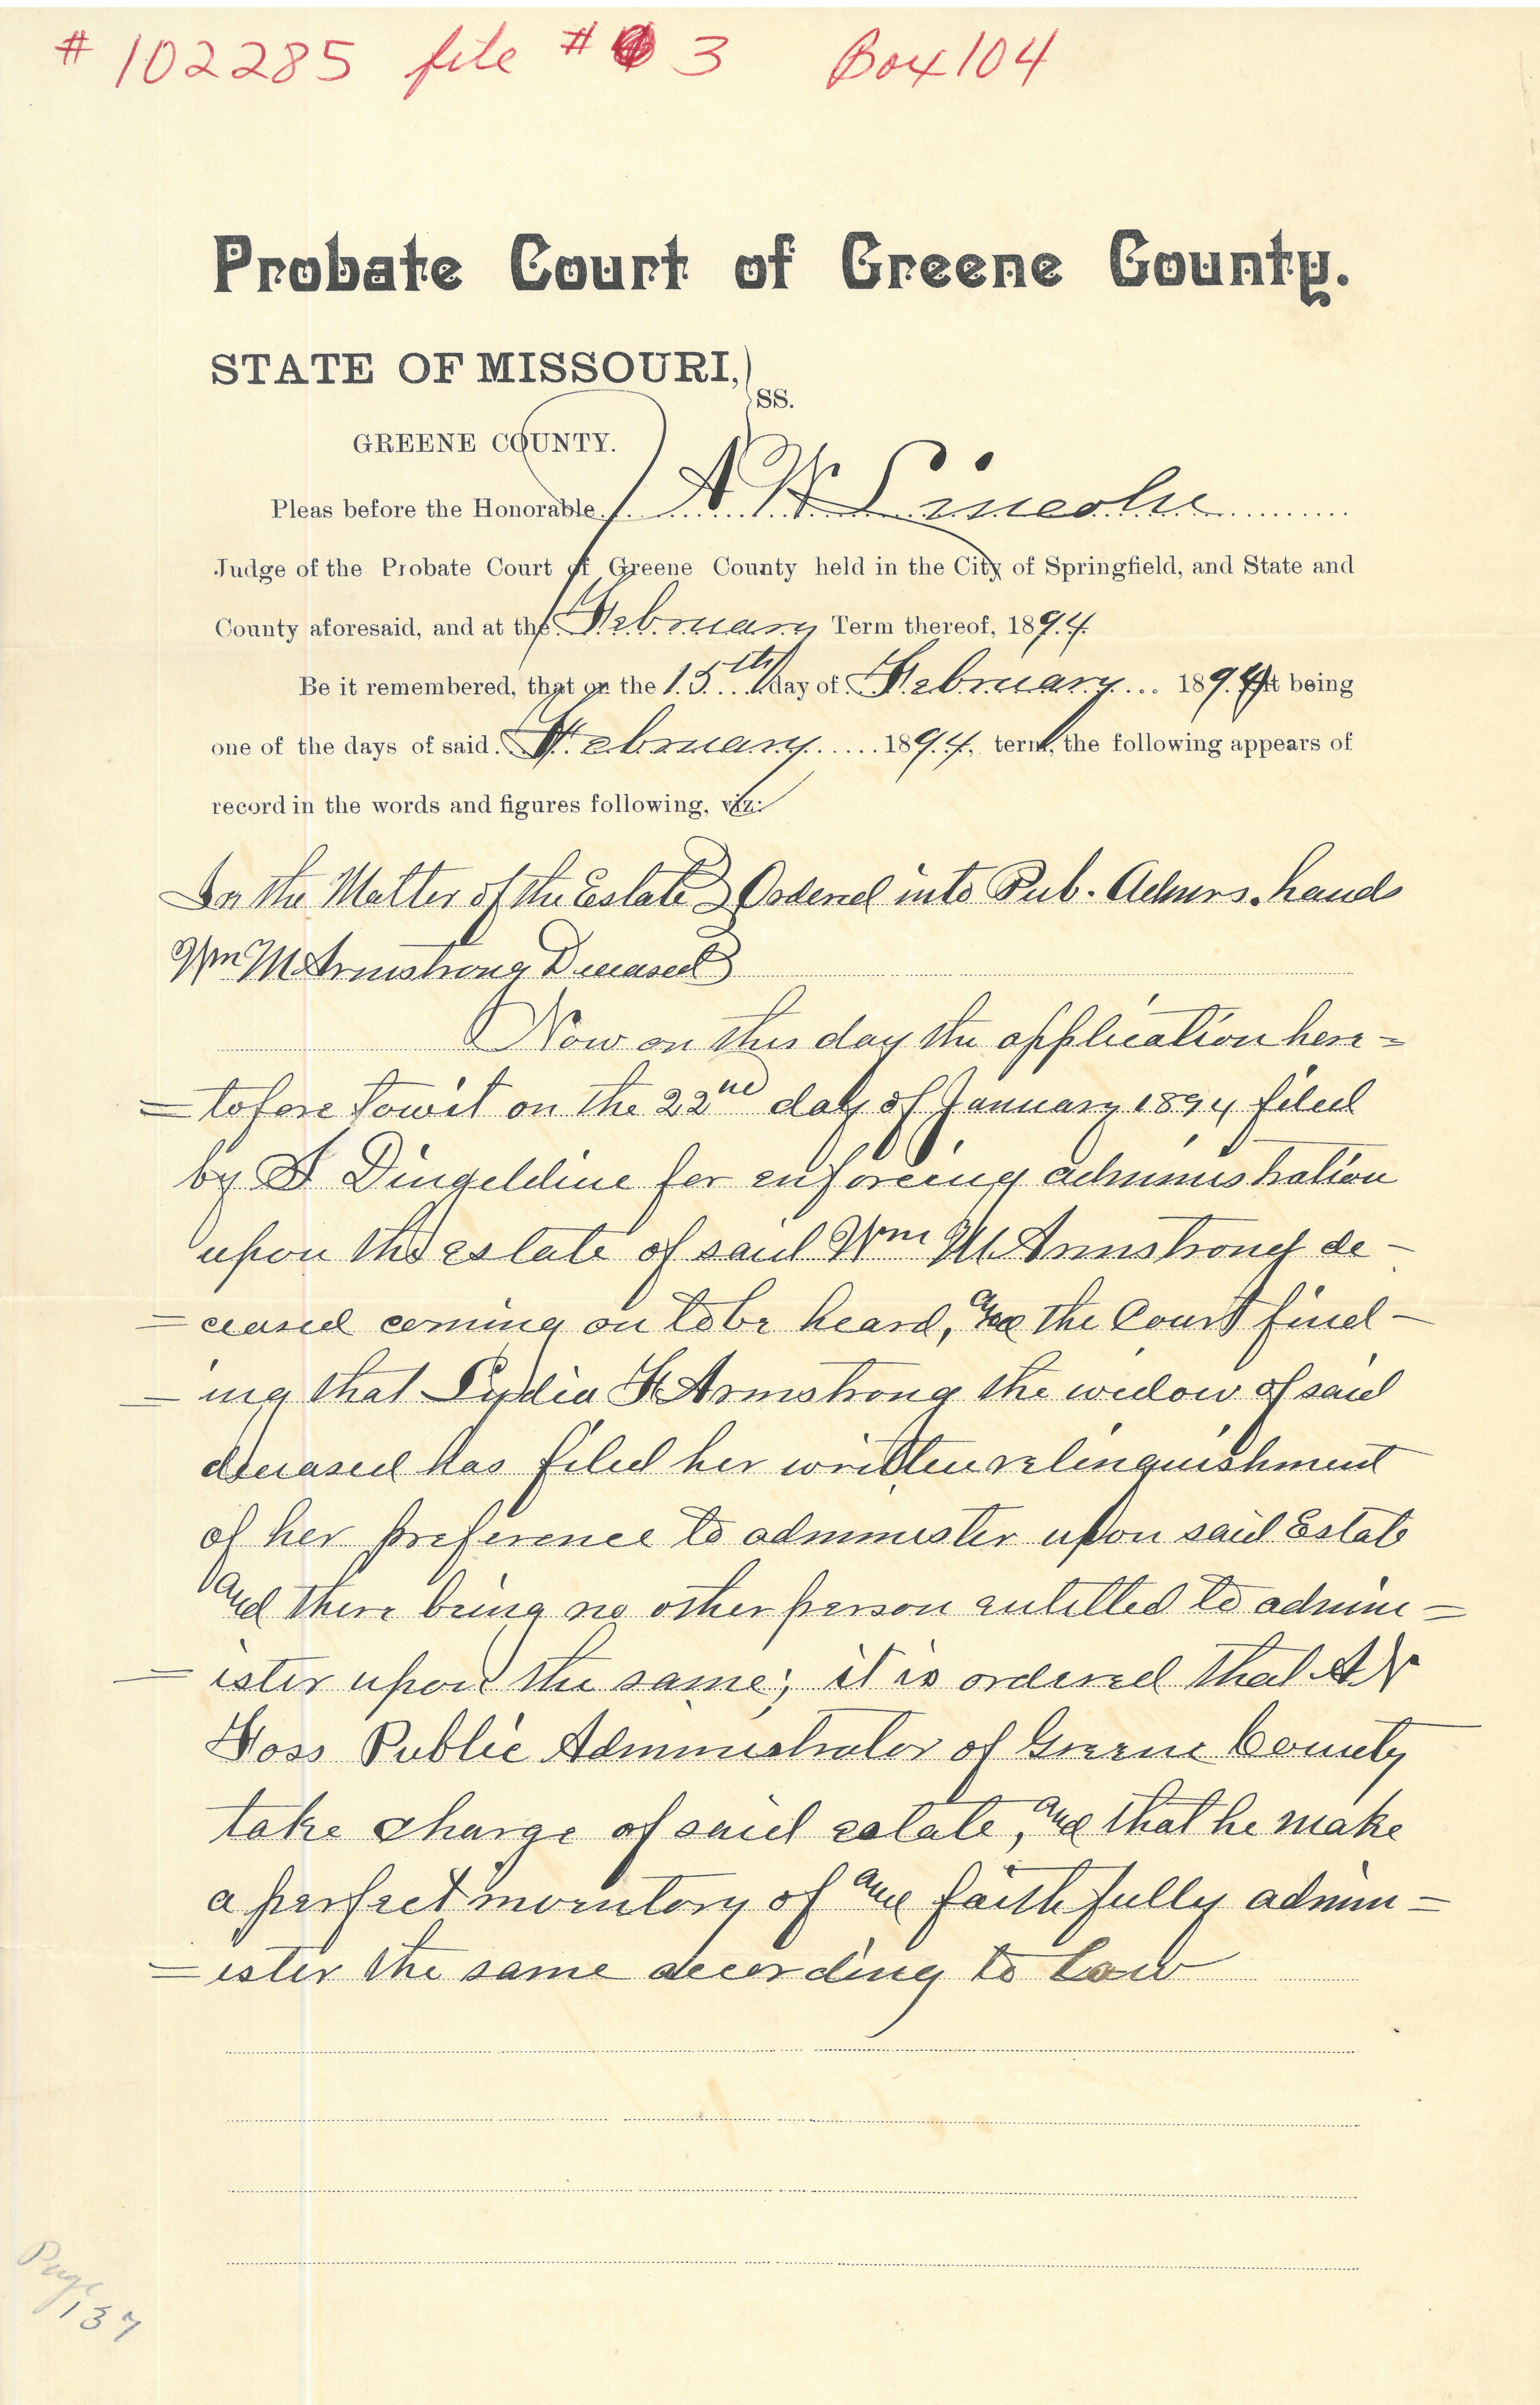 # 102285 file # 3 Box 104
Probate Court of Greene County.
STATE OF MISSOURI, } SS.
GREENE COUNTY.
Pleas before the Honorable A W Lincoln
Judge of the Probate Court of Greene County held in the City of Springfield, and State and
County aforesaid, and at the February Term thereof, 1894.
Be it remembered, that on the 15th day of February 1894 It being
one of the days of said February 1894, term, the following appears of
record in the words and figures following, viz:
In the Matter of the Estate } Ordered into Pub. Admrs. hands
Wm M Armstrong Deceased }
Now on this day the application here=
=tofore towit on the 22nd day of January 1894 filed
by Dingeldine for enforcing administration
upon the estate of said Wm M Armstrong de-
=ceased coming on to be heard, and the Court find-
-ing that Lydia F Armstrong the widow of said
deceased has filed her written relinquishment
of her preference to administer upon said Estate
and there being no other person entitled to admin=
=ister upon the same; it is ordered that
Foss Public Administrator of Greene County
take charge of said estate, and that he make
a perfect inventory of and faithfully admin=
=ister the same according to Law
Page
137